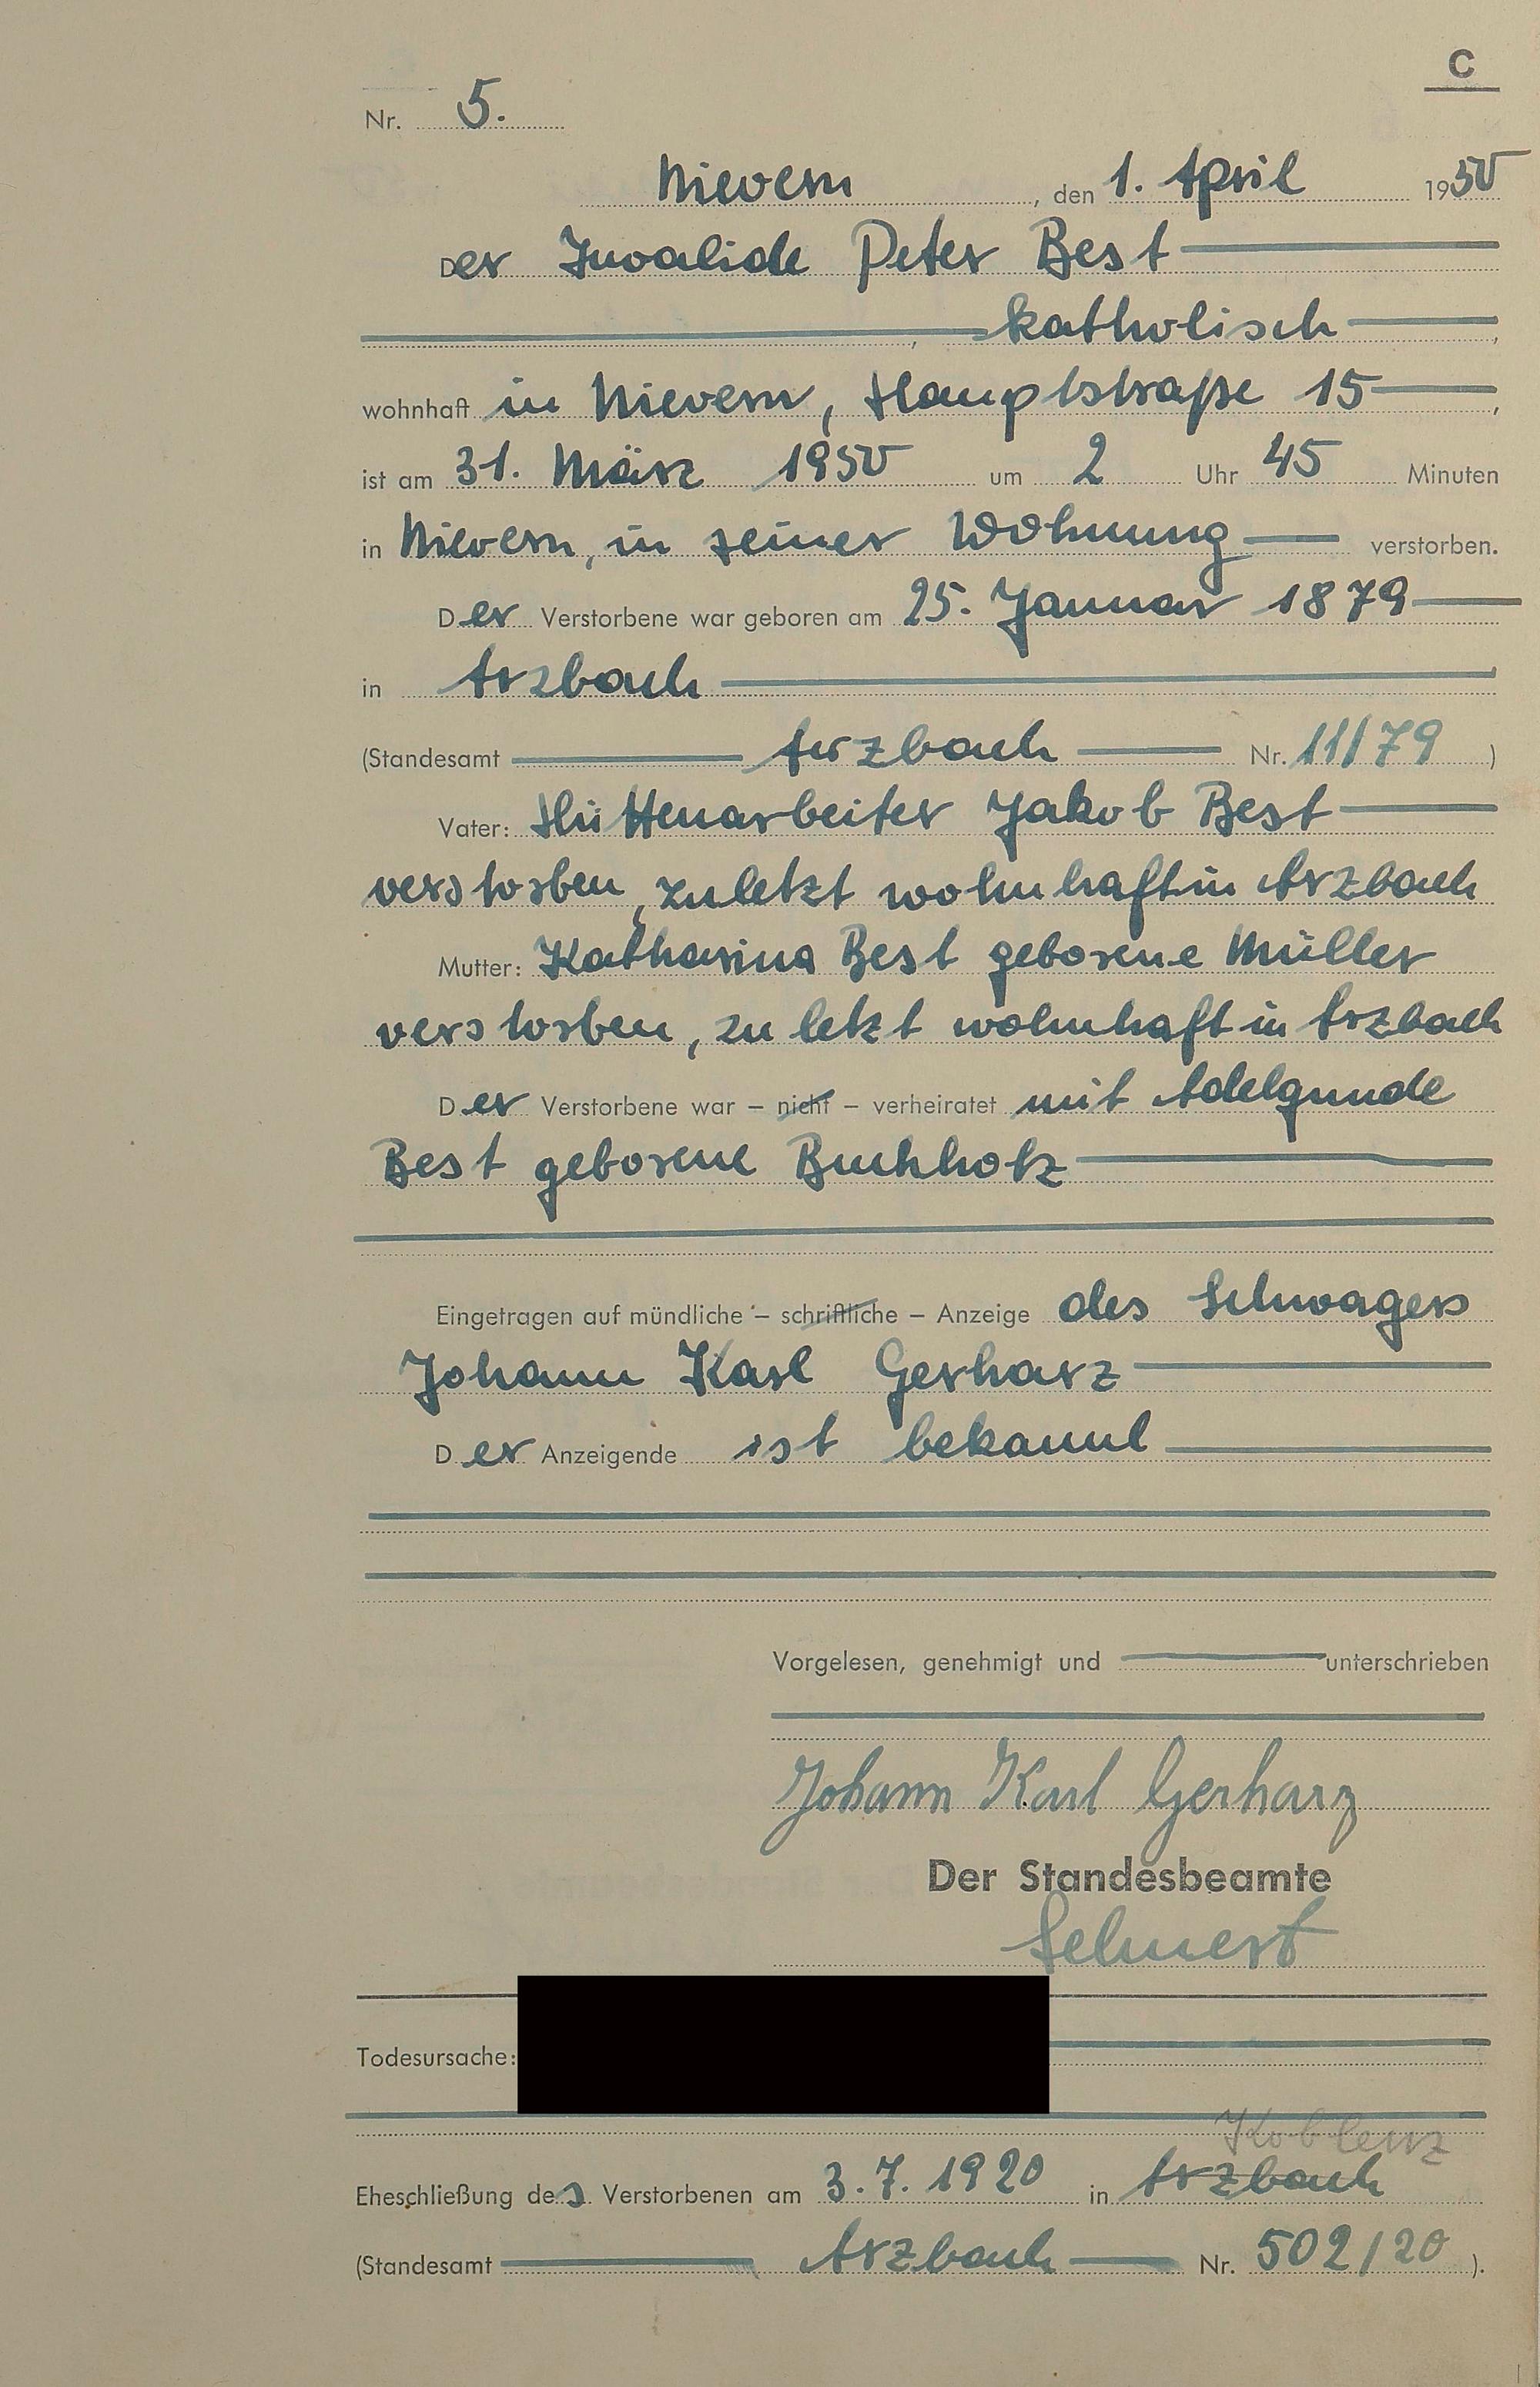 C
Nr. 5.
Nievern, den 1. April 1950
Der Invalide Peter Best
, katholisch,
wohnhaft in Nievern, Hauptstraße 15,
ist am 31. März 1950 um 2 Uhr 45 Minuten
in Nievern, in seiner Wohnung verstorben.
Der Verstorbene war geboren am 25. Januar 1879
in Arzbach
(Standesamt Arzbach Nr. 11/79)
Vater: Hüttenarbeiter Jakob Best
verstorben, zuletzt wohnhaft in Arzbach
Mutter: Katharina Best geborene Müller
verstorben, zuletzt wohnhaft in Arzbach
Der Verstorbene war – nicht – verheiratet mit Adelgunde
Best geborene Buchholz
Eingetragen auf mündliche – schriftliche – Anzeige des Schwagers
Johann Karl Gerharz
Der Anzeigende ist bekannt
Vorgelesen, genehmigt und unterschrieben
Johann Karl Gerharz
Der Standesbeamte
Todesursache:
Koblenz
Eheschließung des Verstorbenen am 3.7.1920 in Arzbach
(Standesamt Arzbach Nr. 502/20).